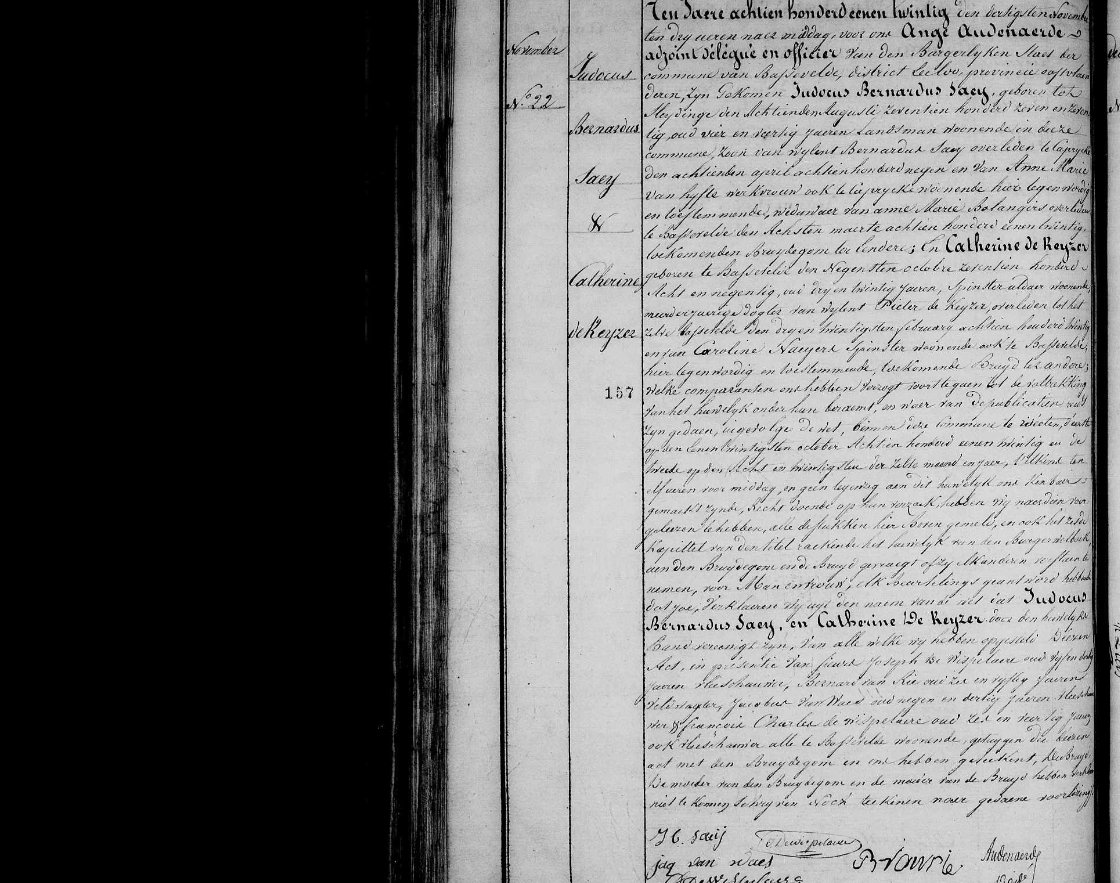 November
N.º 22
Judocus
Bernardus
Saey
&
Catherine
de Keyzer
157
Ten Jaere achtien honderd eenen twintig den dertigsten Novemb
ten dry ueren naer middag, voor ons Ange Audenaerde
adjoint délégué en officier van den Burgerlyken Staet der
commune van Bassevelde, district Eecloo, provincie oostvlaen
deren, zyn Gekomen Judocus Bernardus Saey, geboren tot
Sleydinge den Achtienden Augusti zeventien honderd zeven en zeven
tig, oud vier en veertig Jaeren Landsman woonende in deeze
commune, zoon van wylent Bernardus Saey overleden te Caprycke
den achtienden april achtien honderd negen en van Anne Marie
van hyfte werkvrouw ook te Caprycke woonende hier tegenwoordig
en toestemmende, weduwaer van anne Marie Bolangirs overleden
te Bassevelde den Achsten maerte achtien honderd eenen twintig,
toekomenden Bruydegom ter eendere; En Catherine de Keyzer
geboren te Bassevelde den Negensten octobre zeventien honderd
Acht en negentig, oud dry en twintig Jaeren, Spinster aldaer woonende
meerderjaerige dogter van wylent Pieter de Keyzer, overleden tot het
zelve Bassevelde den dry en twintigsten february achtien honderd twintig
en van Caroline Naeyers Spinster woonende ook te Bassevelde,
hier tegenwoordig en toestemmende, toekomende Bruyd ter andere;
welke comparanten ons hebben verzogt voort te gaen tot de voltrekking
van het huwelyk onder hun beraemt, en waer van de publicatien
zyn gedaen, ingevolge de wet, binnen deze Commune te weeten, d'eerste
op den eenen twintigsten october Achtien honderd eenen twintig en de
tweede op den Acht en twintigsten der zelve maend en jaer, t'elkens ten
elf ueren voor middag, en geen tegenzeg aen dit huwelyk ons kenbaer
gemaekt zynde, Recht doende op hun verzoek, hebben wy naer dien voor
gelezen te hebben, alle de stukken hier boven gemeld, en ook het zesde
Kapittel van den titel raekende het huwelyk van den Burger wetboek
aen den Bruydegom en de Bruyd gevraegt of zy Malkanderen
nemen, voor Man en vrouw, elk Beurtelings geantword hebbende
dat Jae, Verklaeren wy uyt den naem van de wet dat Judocus
Bernardus Saey, en Catherine De Keyzer door den huwelyks
Band vereenigt zyn, Van alle welke wy hebben opgesteld Deezen
Act, in présentie van sieurs Joseph De Wispelaere oud vyf en dertig
jaeren vleeschauwer, Bernard van Rie oud zes en vyftig jaeren
veldwagter, Jacobus Van Waes oud negen en dertig jaeren vleeschau
wer & francois Charles de wispelaere oud zes en veertig jaeren
ook vleeschauwer alle te Bassevelde woonende, getuygen die deezen
act met den Bruydegom en ons hebben geteekent, De Bruyd
De moeder van den Bruydegom en de moeder van de Bruyd hebben verklaert
niet te konnen Schryven Noch teekenen naer gedaene voorlezing
J B. Saeij
J Dewispelaere
jaq van waes
B v Rie
Audenaerde